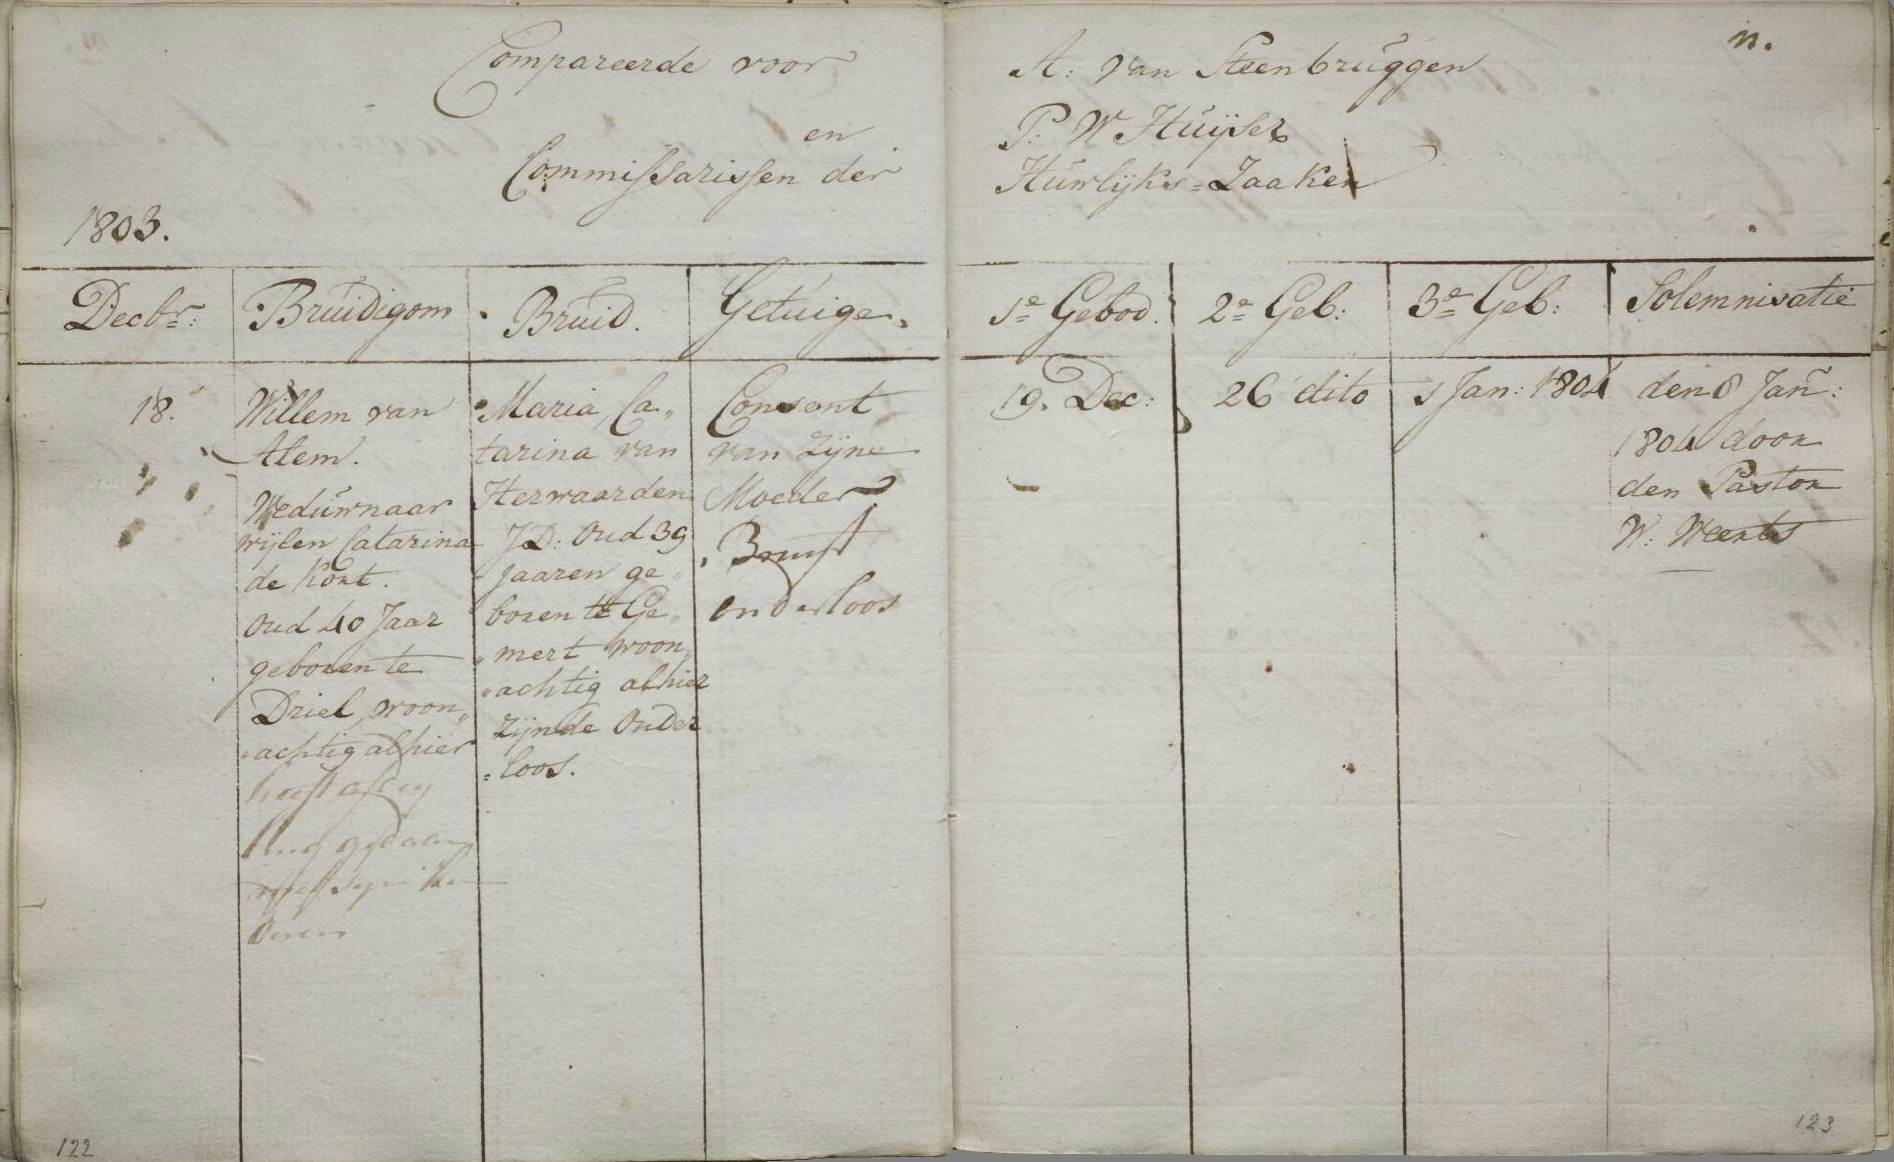 Compareerde voor
en
Commissarissen der
1803.
Decbr:
Bruidigom
Bruid.
Getuige.
18.
Willem van
Alem.
Weduwnaar
wijlen Catarina
de Kort.
Oud 40 Jaar
geboren te
Driel, woon„
„achtig alhier
heeft
gedaan
Maria, Ca„
tarina van
Herwaarden
J.D: Oud 39
Jaaren ge„
boren te Ge„
„mert woon„
„achtig alhier
zijnde Ouder
=loos.
Consent
van zijne
Moeder
Bruijt
ouderloos
122
n.
A: van Steenbruggen
P: W Huijser
Huwlijks=Zaaken
1e Gebod.
2e Geb:
3e Geb:
Solemnisatie
19. Dec:
26 dito
1 Jan: 1804
den 8 Jan:
1804 door
den Pastor
W: Weerts
123